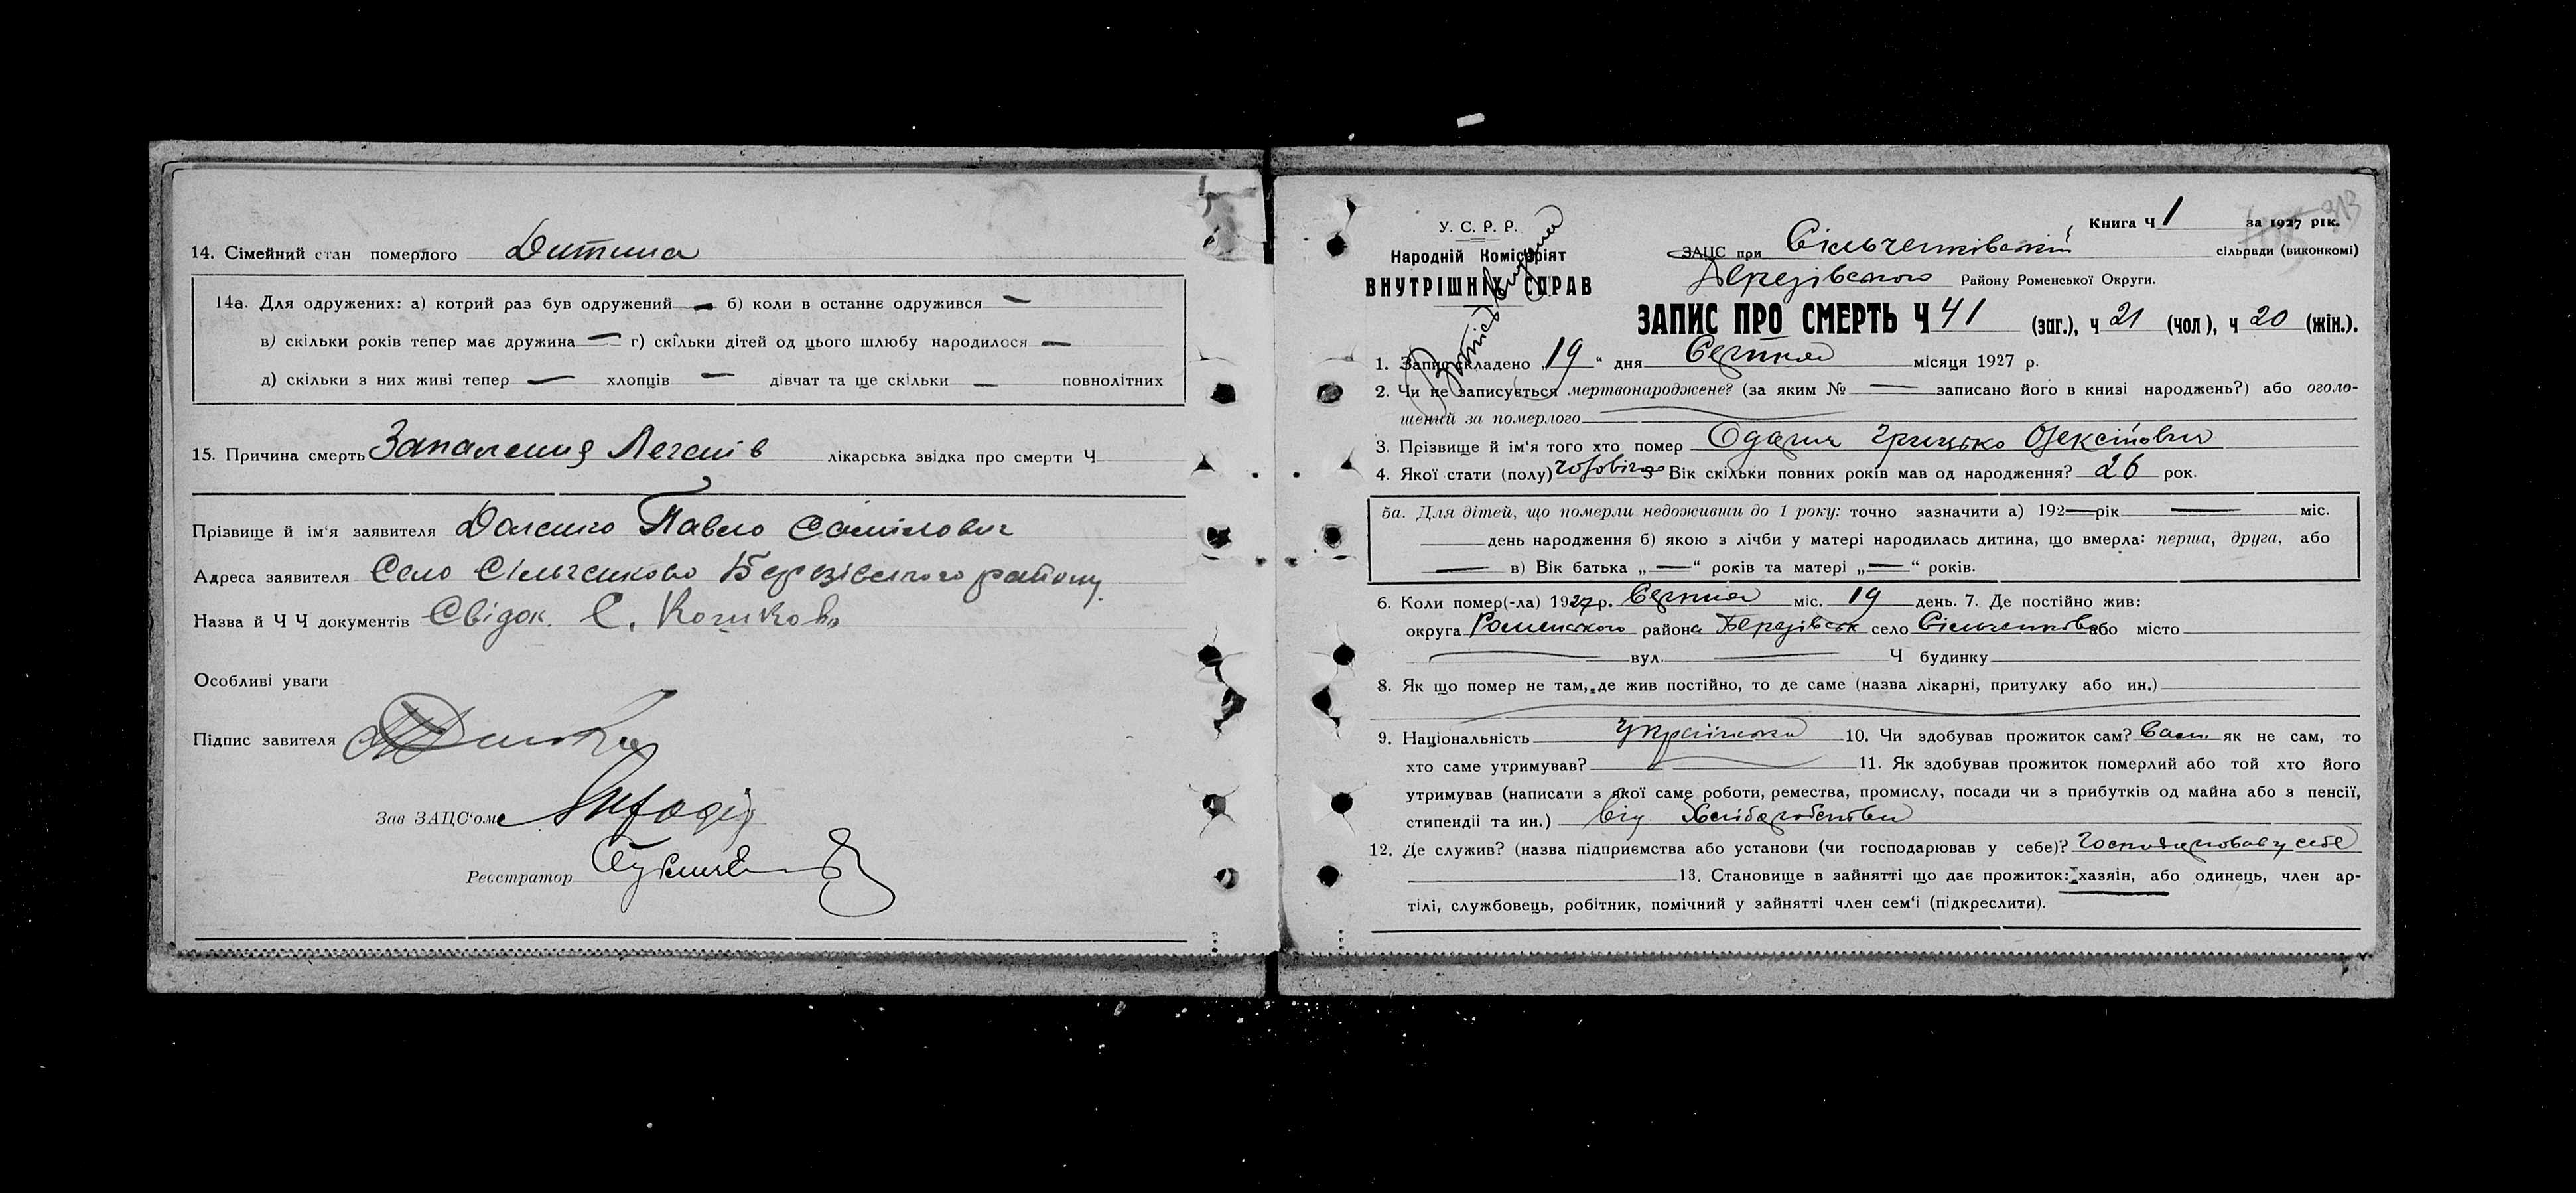 14. Сімейний стан померлого Дитина
14а. Для одружених: а) котрий раз був одружений — б) коли в останнє одружився —
в) скільки років тепер має дружина — г) скільки дітей од цього шлюбу народилося —
д) скільки з них живі тепер — хлопців — дівчат та ще скільки — повнолітних
15. Причина смерть Запалення Легенів лікарська звідка про смерти Ч
Прізвище й ім'я заявителя Павло
Адреса заявителя Село Сільченково Березівського району
Назва й Ч Ч документів Свідок. С.
Особливі уваги
Підпис завителя
Зав ЗАЦС'ом
Реєстратор
Книга Ч 1 за 1927 рік.
313
У. С. Р. Р.
Народній Комісаріят
ВНУТРІШНІХ СПРАВ
ЗАЦС при Сільченківській сільради (виконкомі)
Березівського Району Роменської Округи.
ЗАПИС ПРО СМЕРТЬ Ч 41 (заг.), ч 21 (чол), ч 20 (жін.).
1. Запис складено „19“ дня Серпня місяця 1927 р.
2. Чи не записується мертвонароджене? (за яким № — записано його в книзі народжень?) або оголо-
шений за померлого
3. Прізвище й ім'я того хто помер Грицько
4. Якої статі (полу) чоловічої 5 Вік скільки повних років мав од народження? 26 рок.
5а. Для дітей, що померли недоживши до 1 року: точно зазначити а) 192—рік — міс.
день народження б) якою з лічби у матері народилась дитина, що вмерла: перша, друга, або
— в) Вік батька „—“ років та матері „—“ років.
6. Коли помер(-ла) 1927р. Серпня міс. 19 день. 7. Де постійно жив:
округа Роменського района Березівськ село Сільченково або місто
вул. — Ч будинку
8. Як що помер не там, де жив постійно, то де саме (назва лікарні, притулку або ин.)
9. Національність 10. Чи здобував прожиток сам? Сам як не сам, то
хто саме утримував? — 11. Як здобував прожиток померлий або той хто його
утримував (написати з якої саме роботи, ремества, промислу, посади чи з прибутків од майна або з пенсії,
стипендії та ин.) від Хліборобства
12. Де служив? (назва підприємства або установи (чи господарював у себе)? господарював у себе
13. Становище в зайнятті що дає прожиток: хазяїн, або одинець, член ар-
тілі, службовець, робітник, помічний у зайнятті член сем'ї (підкреслити).